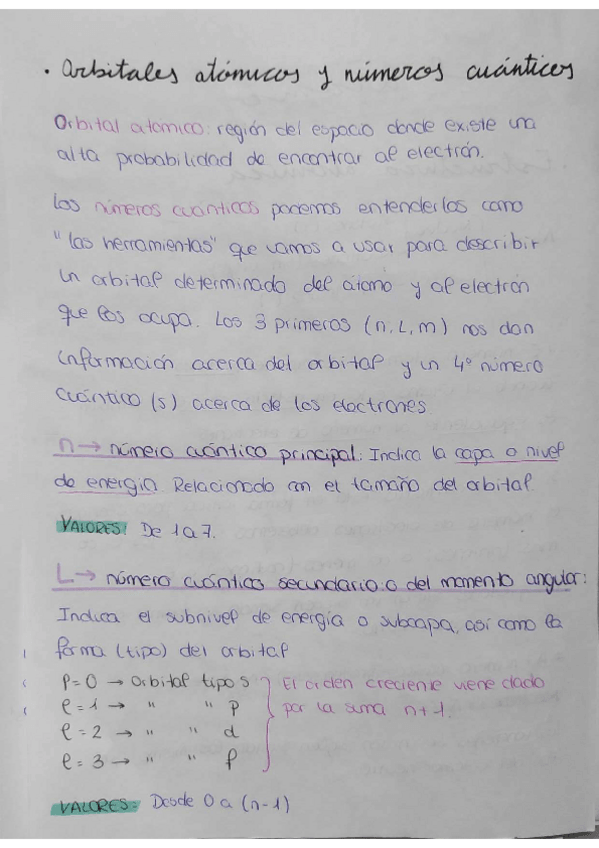 · Orbitales atómicos y números cuánticos
Orbital atómico: región del espacio donde existe una
alta probabilidad de encontrar al electrón.
Los números cuánticos podemos entenderlos como
"las herramientas" que vamos a usar para describir
un orbital determinado del átomo y al electrón
que los ocupa. Los 3 primeros (n, L, m) nos dan
información acerca del orbital y un 4º número
cuántico (s) acerca de los electrones
n → número cuántico principal: Indica la capa o nivel
de energía. Relacionado con el tamaño del orbital.
VALORES: De 1 a 7.
L → número cuántico secundario: o del momento angular:
Indica el subnivel de energía o subcapa, así como la
forma (tipo) del orbital
l = 0 → Orbital tipo s } El orden creciente viene dado
l = 1 → " " p por la suma n + 1.
l = 2 → " " d
l = 3 → " " f
VALORES: Desde 0 a (n-1)